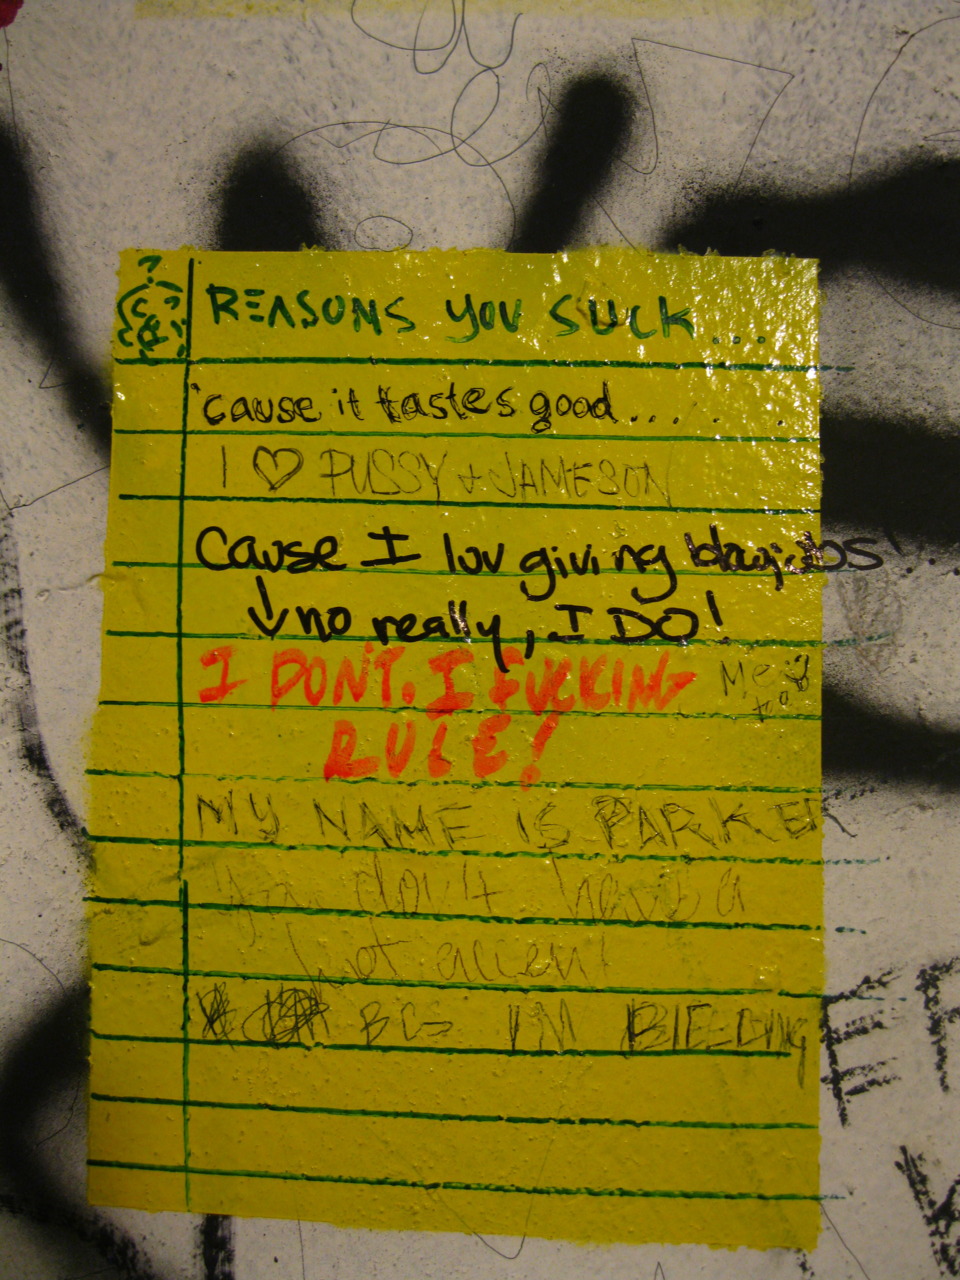 REASONS YOU SUCK...
'cause it tastes good......
I ♡ PUSSY + JAMESON
Cause I luv giving blowjobs!...
↓ no really, I DO!
I DON'T. I FUCKING
RULE!
Me
too
MY NAME IS PARKER
You don't have a
hot accent
BCS I'M BLEEDING